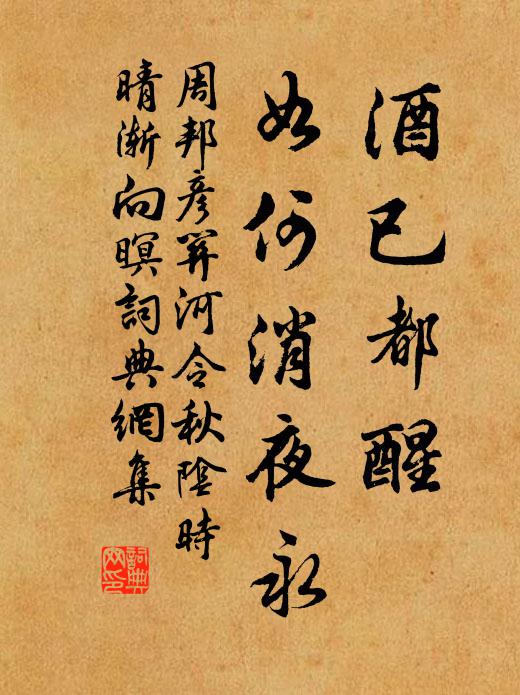 酒已都醒
如何消夜永
周邦彦关河令秋陰時
晴漸向暝詞典網集
詞典
网印